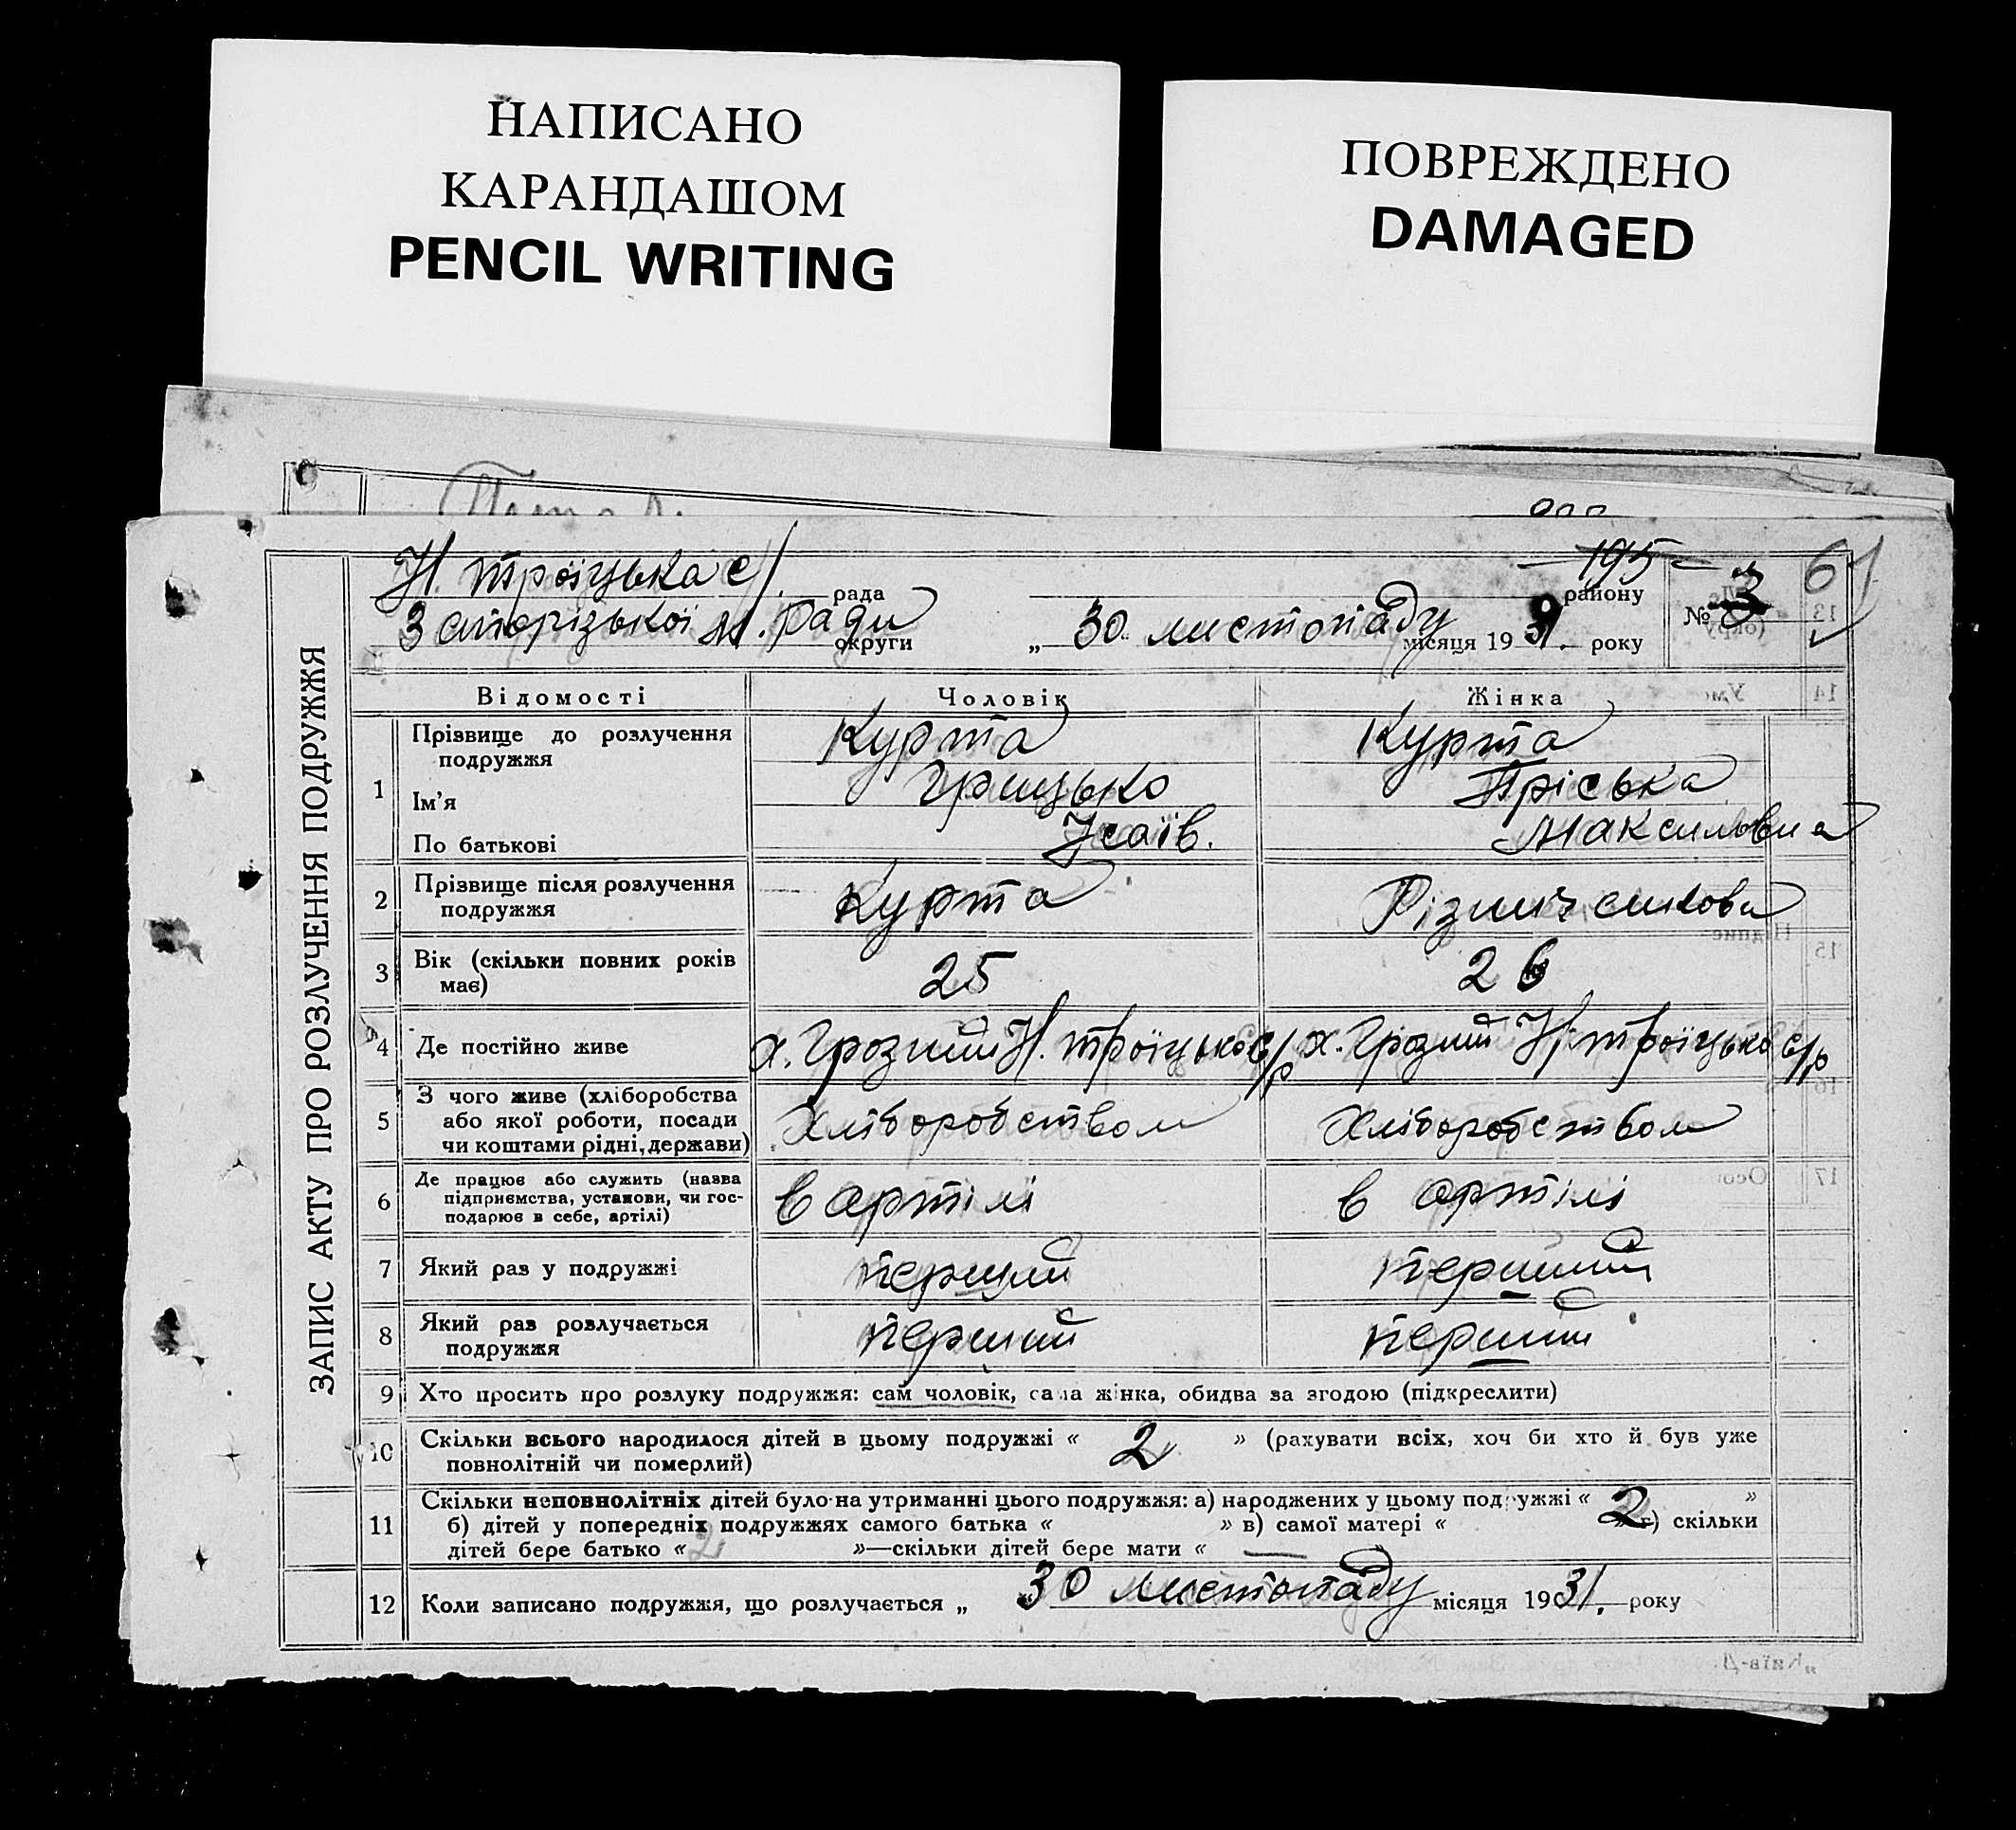 НАПИСАНО
КАРАНДАШОМ
PENCIL WRITING
ПОВРЕЖДЕНО
DAMAGED
195
61
Н. троїцька с/ рада району № 3
Запорізької м. ради округи „ 30 листопаду місяця 1931. року
ЗАПИС АКТУ ПРО РОЗЛУЧЕННЯ ПОДРУЖЖЯ
Відомості Чоловік Жінка
1 Прізвище до розлучення подружжя Курта Курта
Ім'я Грицько Пріська
По батькові Ісаїв. Максимовна
2 Прізвище після розлучення подружжя Курта Різниченкова
3 Вік (скільки повних років має) 25 26
4 Де постійно живе х. Грозний Н. троїцько с/р х. Грозний Н. троїцько с/р
5 З чого живе (хліборобства або якої роботи, посади чи коштами рідні, держави) Хліборобством Хліборобством
6 Де працює або служить (назва підприємства, установи, чи господарює в себе, артілі) в артілі в артілі
7 Який раз у подружжі перший перший
8 Який раз розлучається подружжя перший перший
9 Хто просить про розлуку подружжя: сам чоловік, сама жінка, обидва за згодою (підкреслити)
10 Скільки всього народилося дітей в цьому подружжі « 2 » (рахувати всіх, хоч би хто й був уже
повнолітній чи померлий)
11 Скільки неповнолітніх дітей було на утриманні цього подружжя: а) народжених у цьому подружжі « 2 »
б) дітей у попередніх подружжях самого батька « » в) самої матері « » г) скільки
дітей бере батько « 2 »—скільки дітей бере мати « — »
12 Коли записано подружжя, що розлучається „ 30 листопаду місяця 1931. року